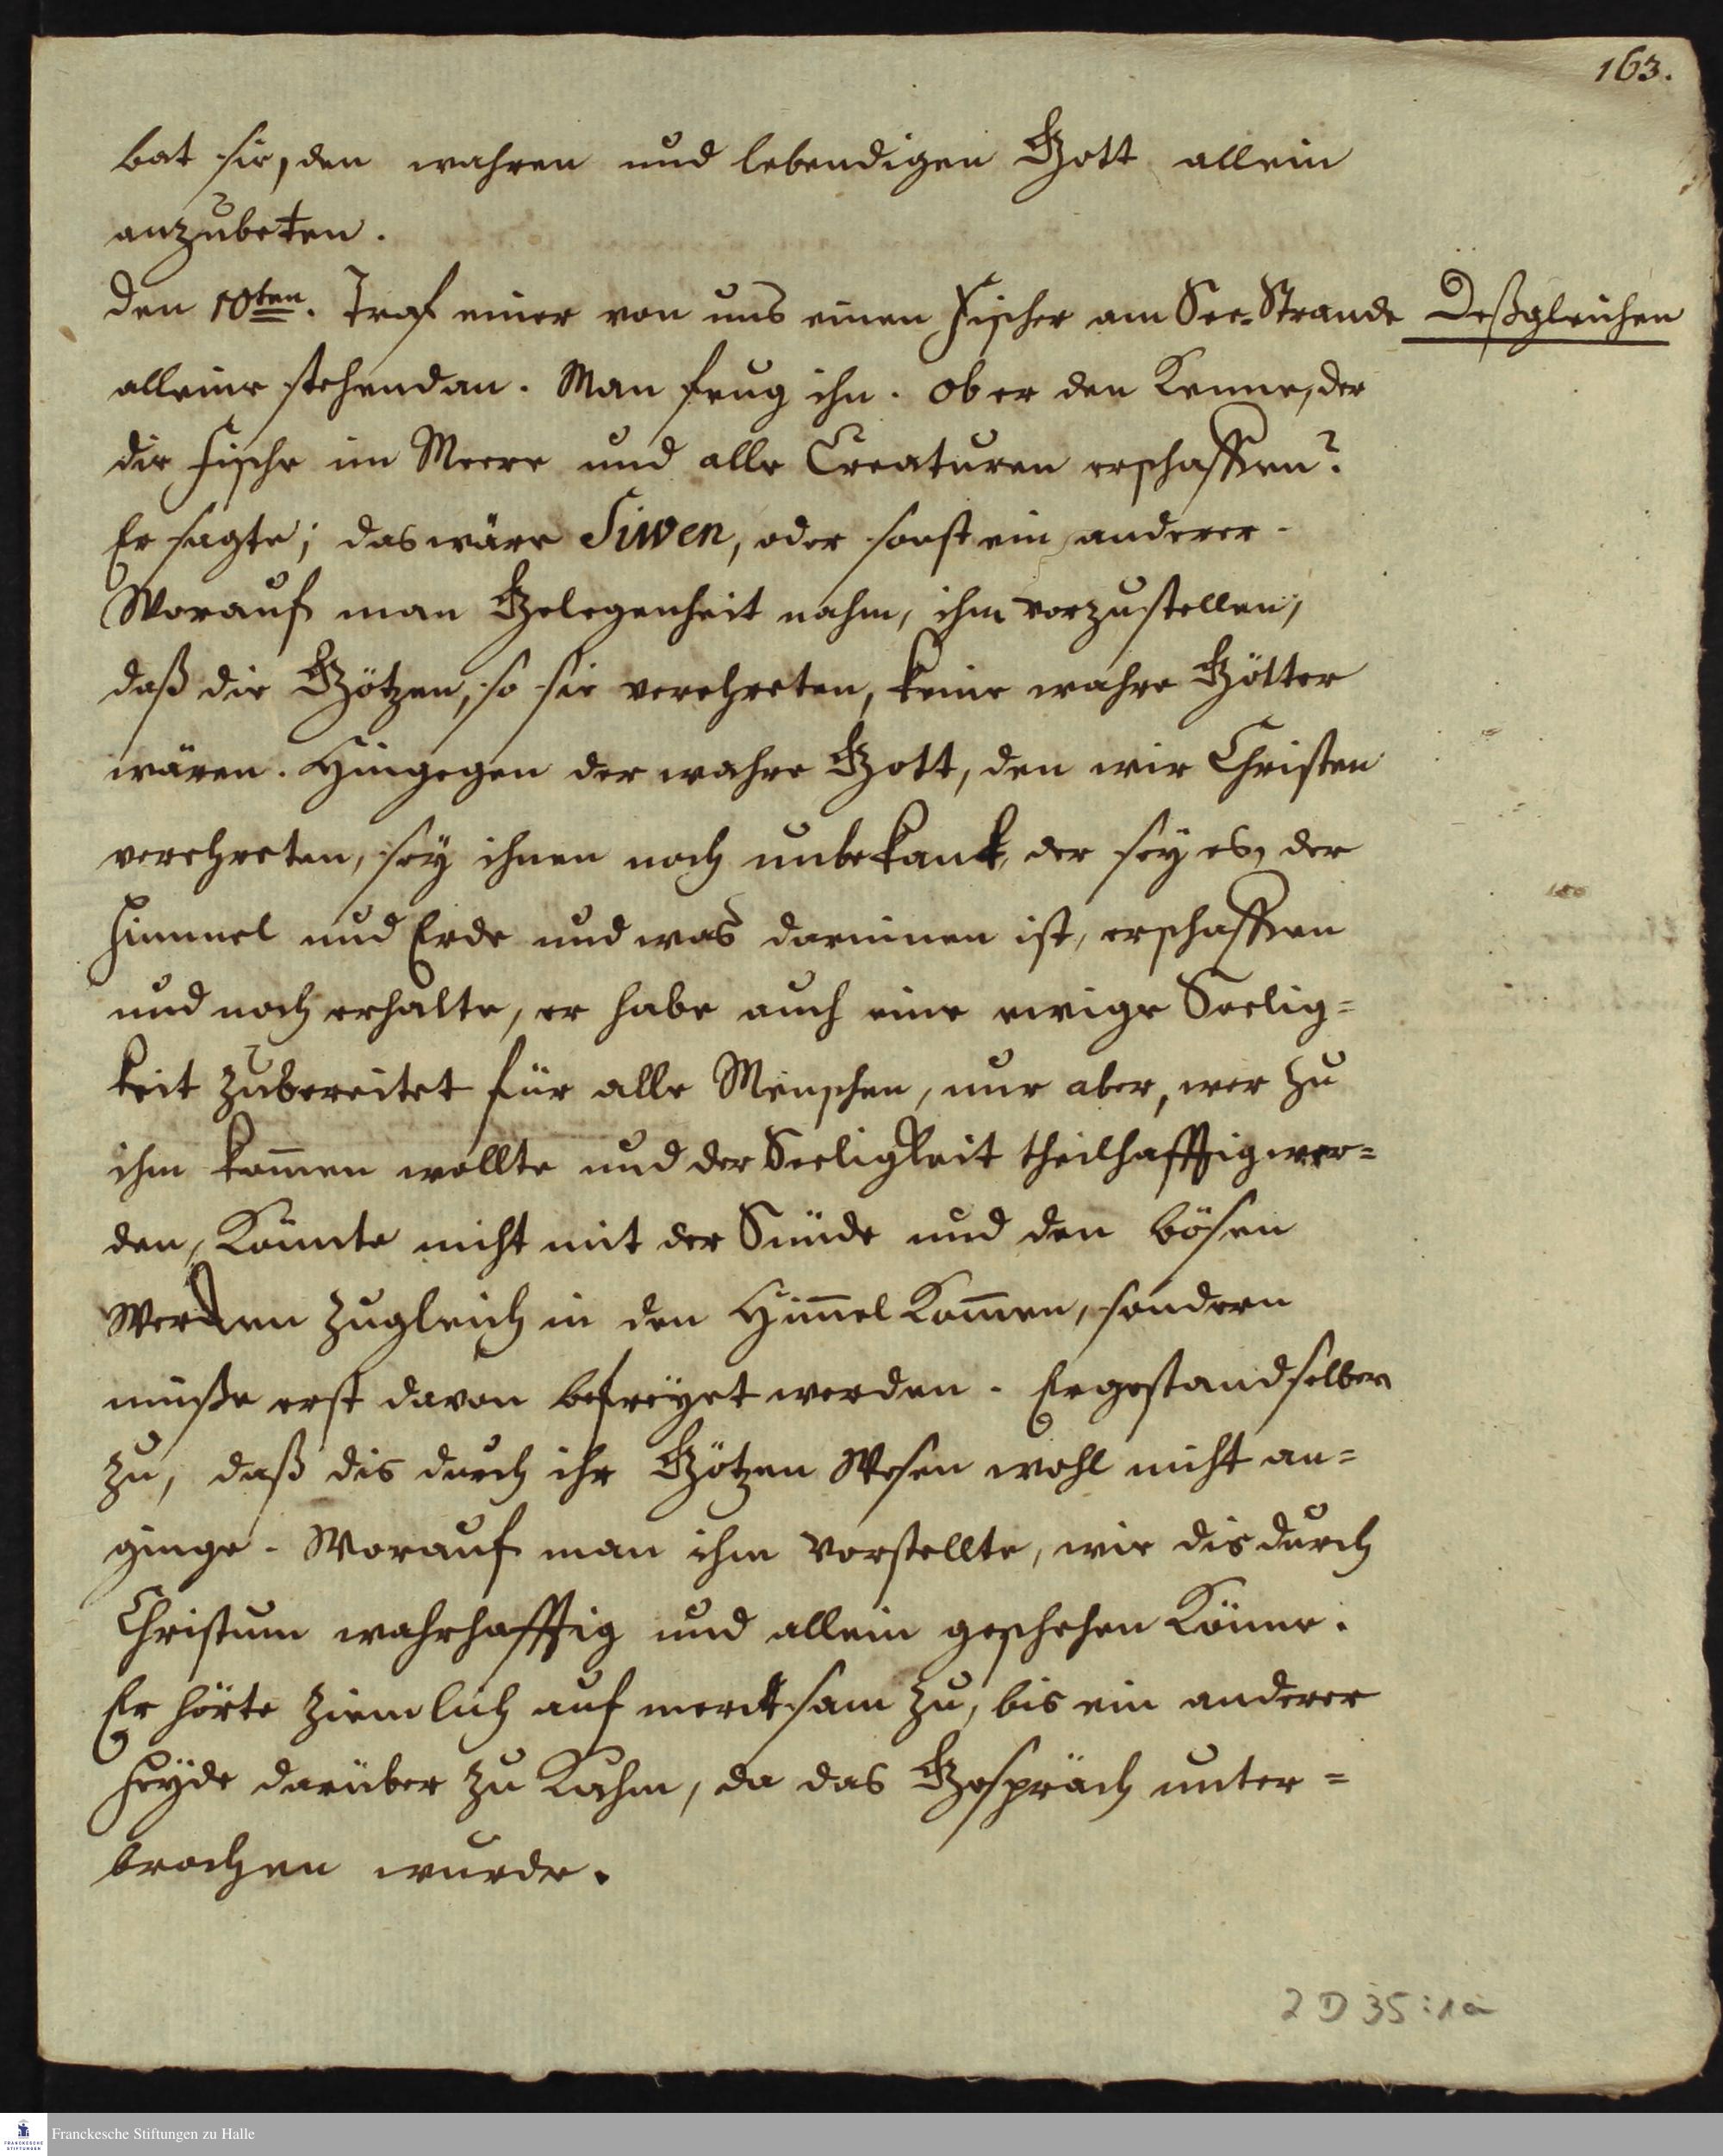 163.
bat sie, den wahren und lebendigen Gott allein
anzubeten.
den 10ten. Traf einer von uns einen Fischer am See-Strande
Deßgleichen
alleine stehend an. Man frug ihn. ob er den Kenne, der
die Fische im Meere und alle Creaturen erschaffen?
Er sagte; das wäre Siwen, oder sonst ein anderer.
Worauf man Gelegenheit nahm, ihm vorzustellen,
daß die Götzen, so sie verehreten, keine wahre Götter
wären. Hingegen der wahre Gott, den wir Christen
verehreten, sey ihnen noch unbekant, der sey es, der
Himmel und Erde und was darinnen ist, erschaffen
und noch erhalte, er habe auch eine ewige Seelig=
keit zubereitet für alle Menschen, nur aber, wer zu
ihm kom̄en wollte und der Seeligkeit theilhafftig wer=
den, Könnte nicht mit der Sünde und den bösen
Wercken zugleich in den Him̄el Kom̄en, sondern
müße erst davon befreyet werden. Er gestand selber
zu, daß dis durch ihr Götzen Wesen wohl nicht an=
ginge. Worauf man ihm vorstellte, wie dis durch
Christum wahrhafftig und allein geschehen Könne.
Er hörte ziemlich auf mercksam zu, bis ein anderer
Heyde darüber zu Kahm, da das Gespräch unter=
brochen wurde.
2 D 35:1a
Franckesche Stiftungen zu Halle